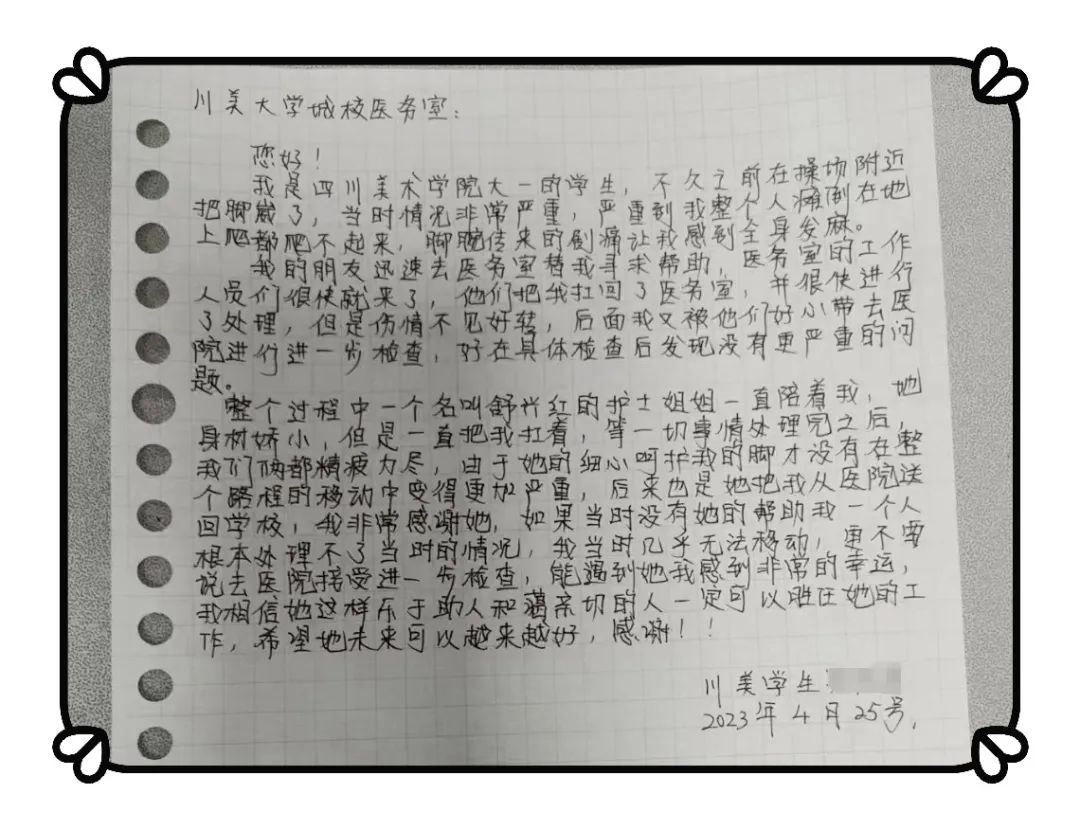 川美大学城校医务室：
您好！
我是四川美术学院大一的学生，不久之前在操场附近
把脚崴了，当时情况非常严重，严重到我整个人瘫倒在地
上爬都爬不起来，脚腕传来的剧痛让我感到全身发麻。
我的朋友迅速去医务室替我寻求帮助，医务室的工作
人员们很快就来了，他们把我扛回了医务室，并很快进行
了处理，但是伤情不见好转，后面我又被他们好心带去医
院进行进一步检查，好在具体检查后发现没有更严重的问
题。
整个过程中一个名叫舒兴红的护士姐姐一直陪着我，她
身材娇小，但是一直把我扛着，等一切事情处理完之后，
我们俩都精疲力尽，由于她的细心呵护我的脚才没有在整
个路程的移动中变得更加严重，后来也是她把我从医院送
回学校，我非常感谢她，如果当时没有她的帮助我一个人
根本处理不了当时的情况，我当时几乎无法移动，更不要
说去医院接受进一步检查，能遇到她我感到非常的幸运，
我相信她这样乐于助人和蔼亲切的人一定可以胜任她的工
作，希望她未来可以越来越好，感谢！！
川美学生
2023年4月25号，